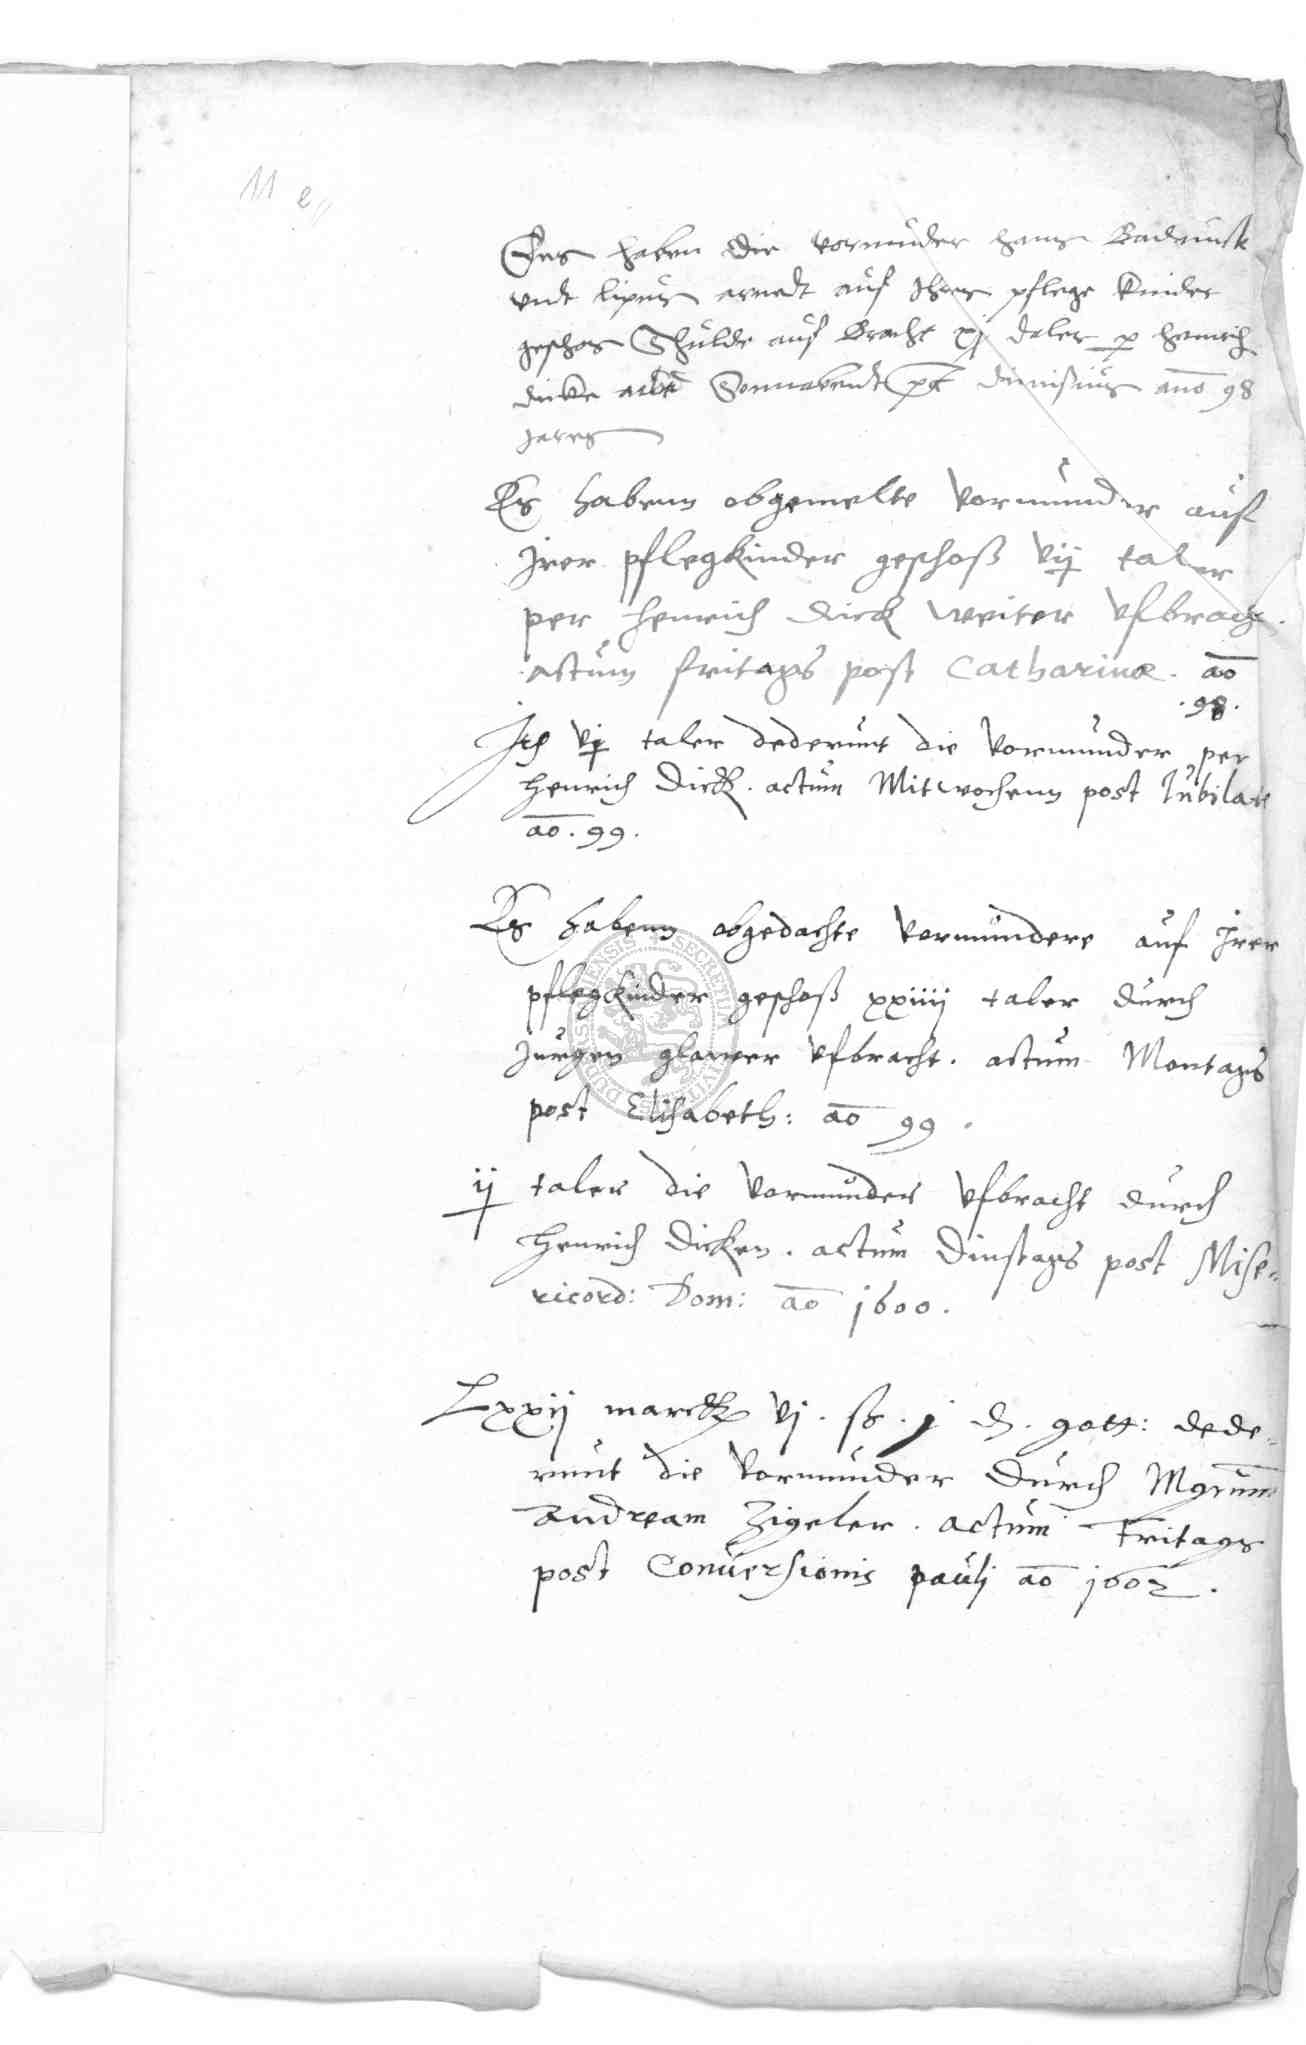 11 e
Eß haben die vormuder hans Badrunck
undt lipus arnedt auf Ihrer pflege kinder
geschos Schulde auf bracht xj daler p henrich
dicke actu Sonnabendt pt dionisius ano 98
Jares
Es habenn obgemelte Vormunder auf
Irer pflegkinder geschoß vij taler
per henrich dick weiter ufbracht.
actum fritags post Catharinae. ao
.98.
Ite vj taler dederunt die Vormunder per
henrich dick. actum Mitwochenn post Jubilate
ao. 99.
Es habenn obgedachte Vormundere auf Irer
pflegkinder geschoß xxiiij taler durch
Jurgen glawer ufbracht. actum Montags
post Elisabeth: ao 99.
ij taler die Vormunder ufbracht durch
henrich dicken. actum Dinstags post Mise-
ricord: Dom: ao 1600.
Lxxij marck vj. ß. j d. gott: dede-
runt die Vormunder durch Mgrum
Andream Zigeler. actum Fritags
post Conversionis pauli ao 1602.